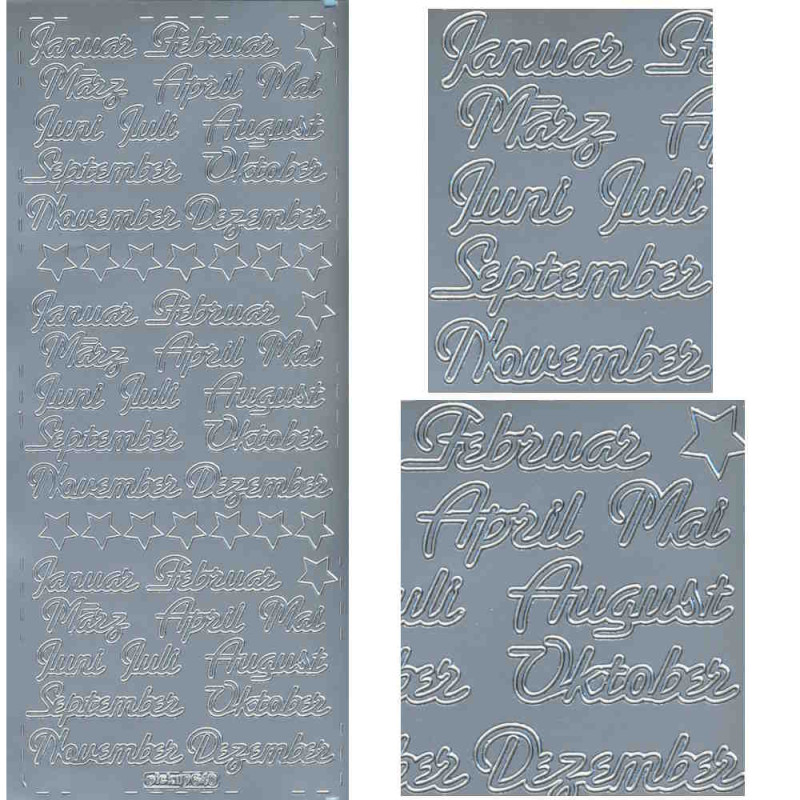 Januar Februar
März April Mai
Juni Juli August
September Oktober
November Dezember
Januar Februar
März April Mai
Juni Juli August
September Oktober
November Dezember
Januar Februar
März April Mai
Juni Juli August
September Oktober
November Dezember
Januar Fe
März A
Juni Juli
September
November
Februar
April Mai
uli August
ber Oktober
ber Dezember